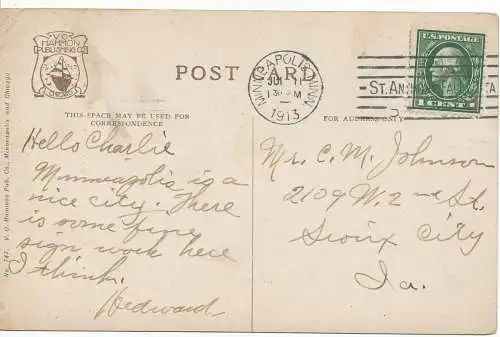 V.O.
HAMMON
PUBLISHING CO.
POST CARD
MINNEAPOLIS, MINN.
11
1913
U.S. POSTAGE
1 CENT 1
THIS SPACE MAY BE USED FOR
CORRESPONDENCE
FOR ADDRESS ONLY
Hello Charlie
Minneapolis is a
nice city. There
is some fine
sign work here
I think.
Hedward
Mr. C. M. Johnson
2109 W. 2nd St.
Sioux City
Ia.
No. 747. V. O. Hammon Pub. Co., Minneapolis and Chicago